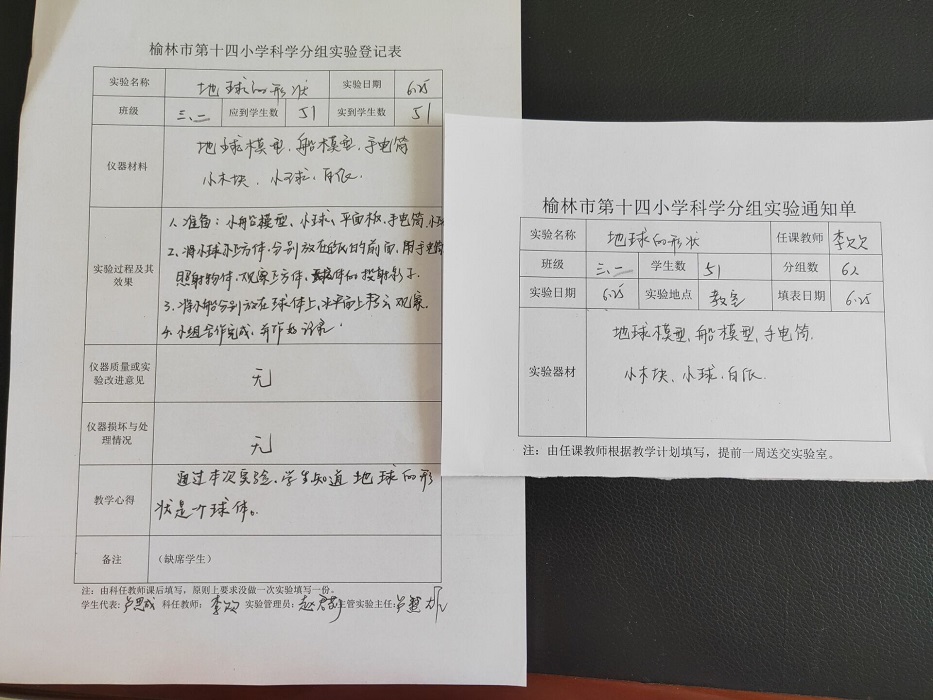 榆林市第十四小学科学分组实验登记表
实验名称 地球的形状 实验日期 6.25
班级 三、二 应到学生数 51 实到学生数 51
仪器材料
地球模型、船模型、手电筒
小木块、小球、白纸.
实验过程及其
效果
1、准备：小船模型、小球、平面板、手电筒、
2、将小球正方体、分别放在白纸的前面，用手电筒
照射物体、观察正方体、球体的投射影子.
3、将小船分别放在球体上、水平面上移动观察.
4、小组合作完成，并作好记录.
仪器质量或实
验改进意见
无
仪器损坏与处
理情况
无
教学心得
通过本次实验、学生知道地球的形
状是个球体。
备注 （缺席学生）
注：由科任教师课后填写，原则上要求没做一次实验填写一份。
学生代表: 科任教师： 李欠欠 实验管理员: 主管实验主任:
榆林市第十四小学科学分组实验通知单
实验名称 地球的形状 任课教师 李欠欠
班级 三、二 学生数 51 分组数 6人
实验日期 6.25 实验地点 教室 填表日期 6.25
实验器材
地球模型、船模型、手电筒.
小木块、小球、白纸.
注：由任课教师根据教学计划填写，提前一周送交实验室。